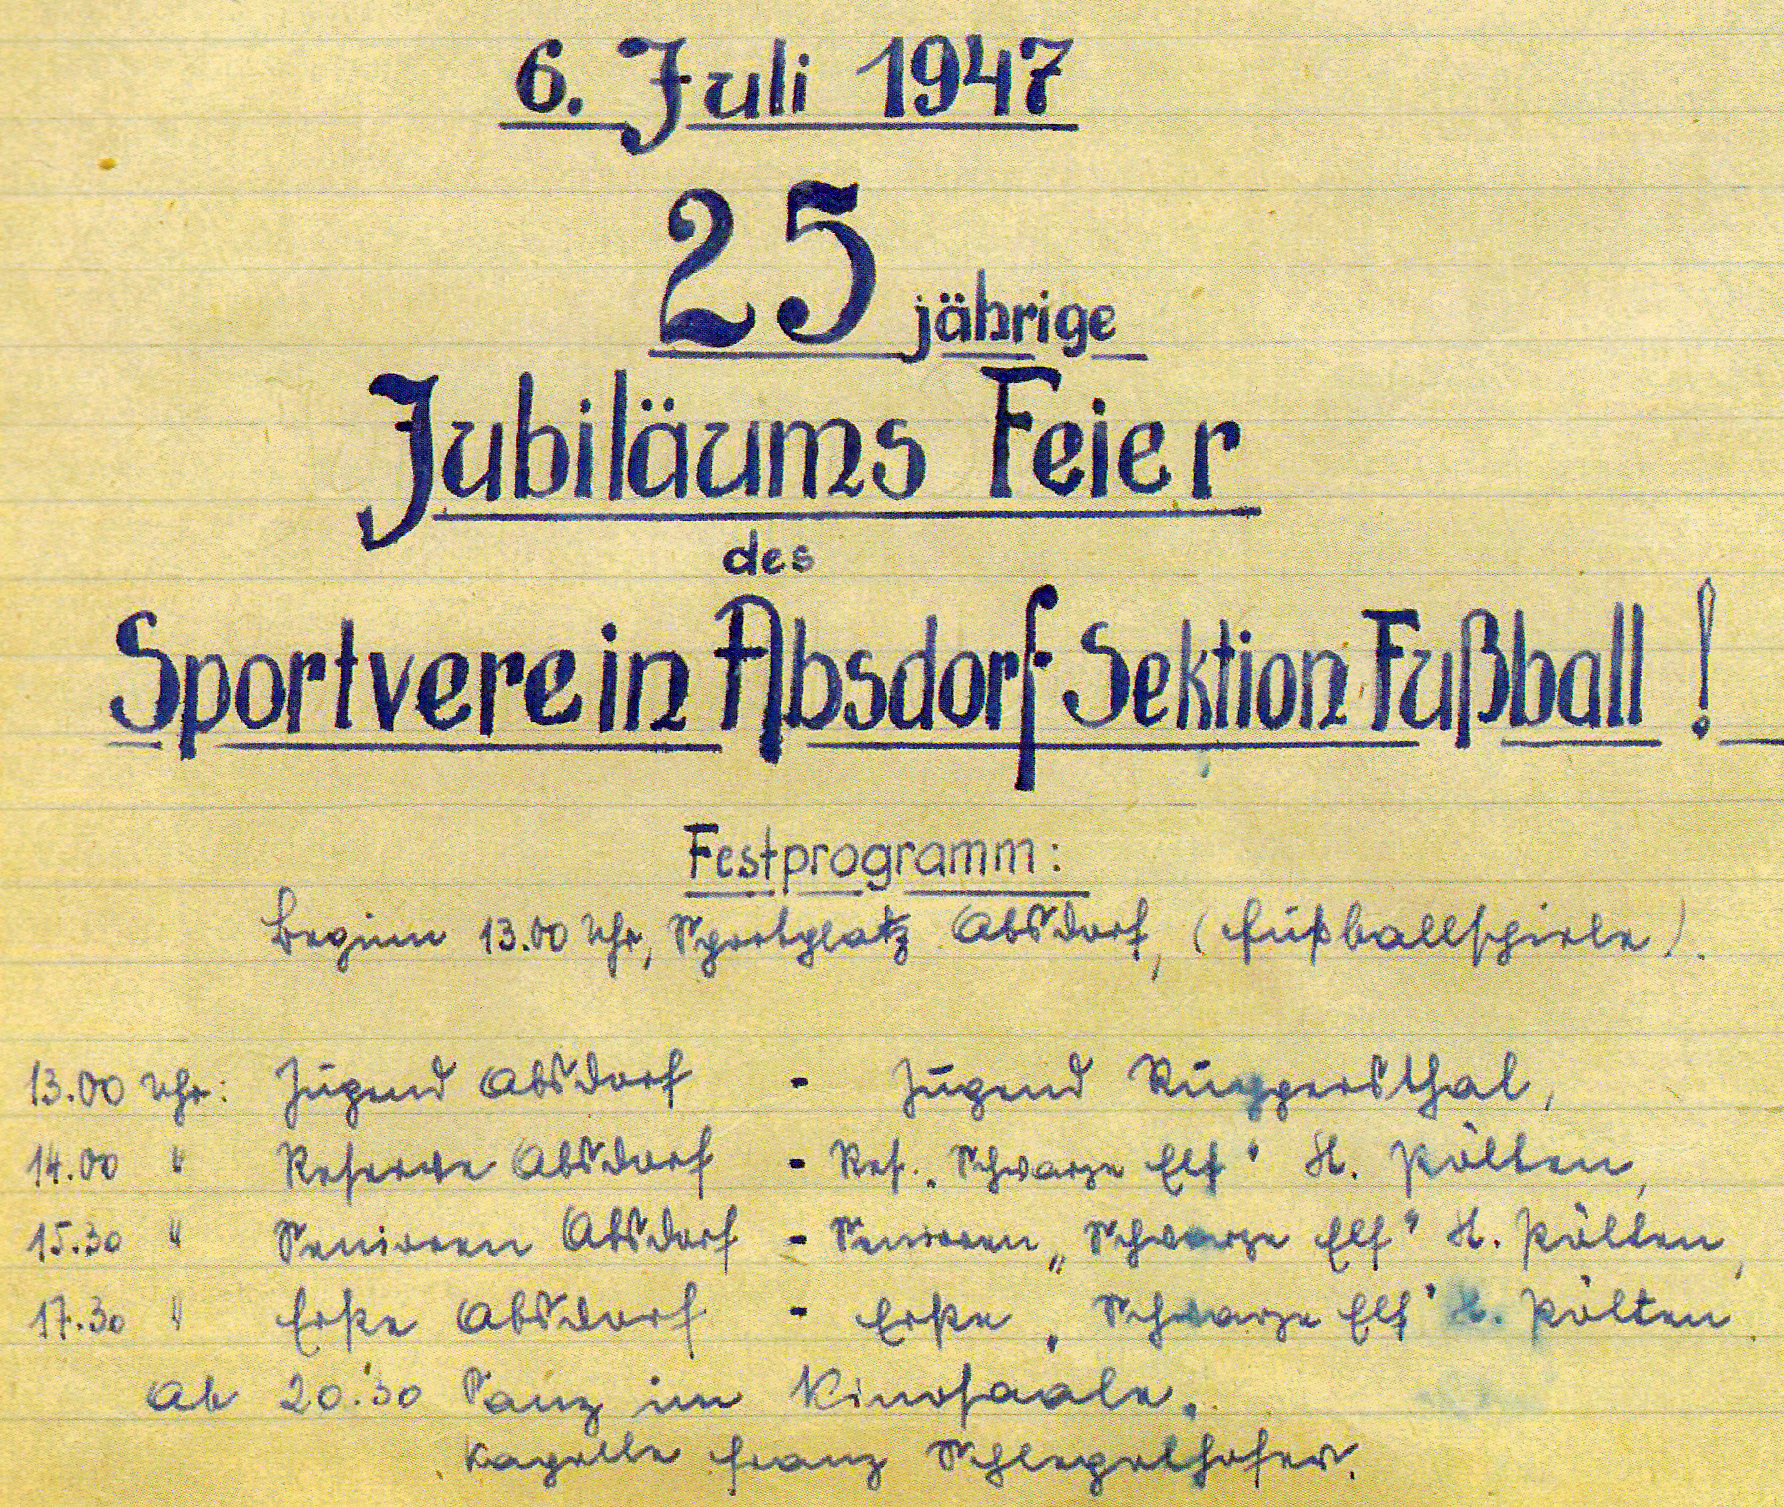 6. Juli 1947
25 jährige
Jubiläums Feier
des
Sportverein Absdorf Sektion Fußball!
Festprogramm:
Beginn 13.00 Uhr, Sportplatz Absdorf, (Fußballspiele).
13.00 Uhr: Jugend Absdorf - Jugend Ruppersthal,
14.00 " Reserve Absdorf - Res. „Schwarze Elf" St. Pölten,
15.30 " Senioren Absdorf - Senioren „Schwarze Elf" St. Pölten,
17.30 " Erste Absdorf - Erste „Schwarze Elf" St. Pölten.
Ab 20.30 Tanz im Kinosaale.
Kapelle Franz Schlegelhofer.